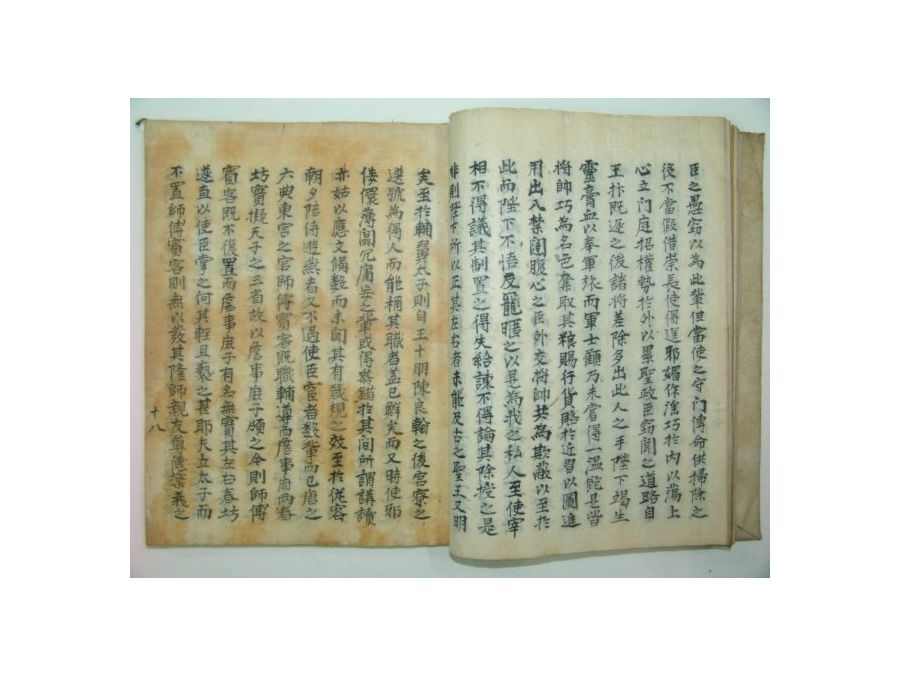 臣之愚竊以為此輩但當使之守門傳命供掃除之
後不當假借崇長使得逞邪媚作淫巧於內以蕩上
心立門庭招權勢於外以累聖政臣竊聞之道路自
王抃既逐之後諸將差除多出此人之手陛下竭生
靈膏血以奉軍旅而軍士顧乃未嘗得一溫飽是皆
將帥巧為名色奪取其粮賜行貨賂於近習以圖進
用出入禁闥腹心之臣外交將帥共為欺蔽以至於
此而陛下不悟反寵暱之以是為我之私人至使宰
相不得議其制置之得失給諫不得論其除授之是
非則陛下所以正其左右者未能及古之聖王又明
矣至於輔翼太子則自王十朋陳良翰之後宮寮之
選號為得人而能稱其職者盖已鮮矣而又時使邪
佞儇薄闒冗庸妄之輩或得叅錯於其間所謂講讀
亦姑以應文備數而未聞其有箴規之效至於從容
朝夕陪侍遊燕者又不過使臣宦者數輩而已唐之
六典東宮之官師傅賓客既職輔導而詹事府兩春
坊實擬天子之三省故以詹事庶子領之今則師傅
賓客既不復置而詹事庶子有名無實其左右春坊
遂直以使臣掌之何其輕且褻之甚耶夫立太子而
不置師傅賓客則無以發其隆師親友尊德樂義之
十八